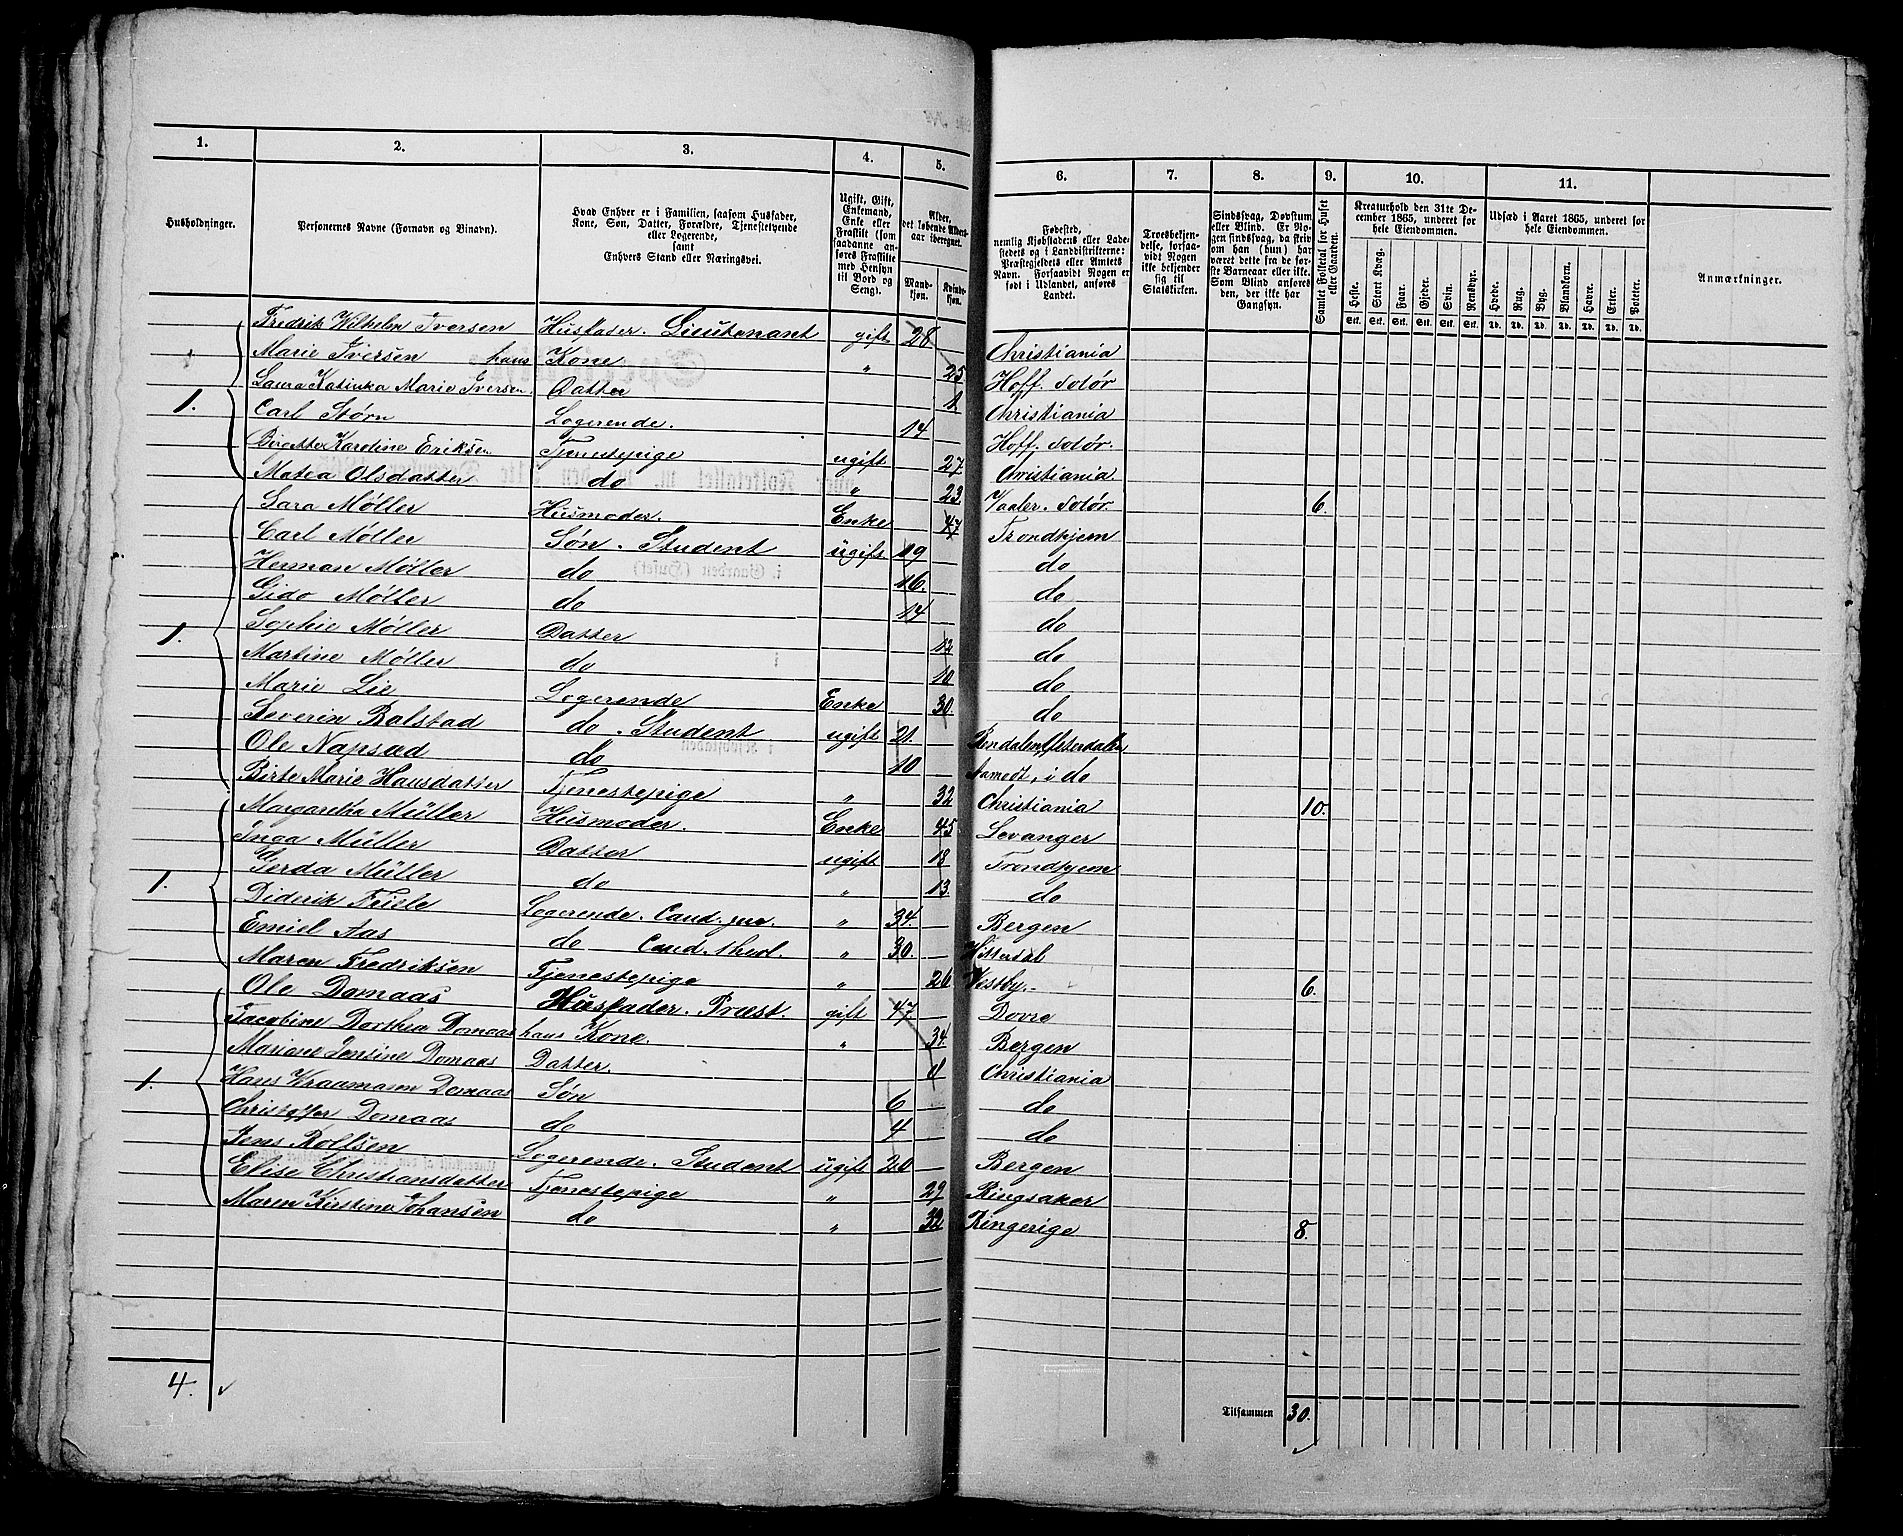 1. 2. 3. 4. 5. 6. 7. 8. 9. 10. 11.
Husholdninger.
Personernes Navne (Fornavn og Binavn).
Hvad Enhver er i Familien, saasom Husfader,
Kone, Søn, Datter, Forældre, Tjenestetyende
eller Logerende,
samt
Enhvers Stand eller Næringsvei.
Ugift, Gift,
Enkemand,
Enke eller
Fraskilt (som
saadanne an-
føres Fraskilte
med Hensyn
til Bord og
Seng).
Alder,
det løbende Alders-
aar iberegnet.
Mand-
kjøn.
Kvinde-
kjøn.
Fødested,
nemlig Kjøbstadens eller Lade-
stedets og i Landdistrikterne:
Præstegjeldets eller Amtets
Navn. Forsaavidt Nogen er
født i Udlandet, anføres
Landet.
Troesbekjen-
delse, forsaa-
vidt Nogen
ikke bekjender
sig til
Statskirken.
Sindssvag, Døvstum
eller Blind. Er No-
gen sindssvag, da skriv
om han (hun) har
været dette fra de før-
ste Barneaar eller ikke.
Som Blind anføres
den, der ikke har
Gangsyn.
Samlet Folketal for Huset
eller Gaarden.
Kreaturhold den 31te De-
cember 1865, underet for
hele Eiendommen.
Heste. Stort Kvæg. Faar. Gjeder. Svin. Rensdyr.
Stk. Stk. Stk. Stk. Stk. Stk.
Udsæd i Aaret 1865, underet for
hele Eiendommen.
Hvede. Rug. Byg. Blandkorn. Havre. Erter. Poteter.
Td. Td. Td. Td. Td. Td. Td.
Anmærkninger.
Fredrik Wilhelm Iversen Husfader. Lieutenant gift 28 Christiania
Marie Iversen hans Kone " 25 Hoff. Solør
1. Laura Katinka Marie Iversen Datter 1 Christiania
Carl Størn Logerende. 14 Hoff. Solør.
Birgitte Karoline Eriksen Tjenestepige ugift 27 Christiania.
Matea Olsdatter do " 23 Vaaler. Solør. 6.
Sara Møller Husmoder. Enke 47 Trondhjem
Carl Møller Søn. Student ugift 19 do
Herman Møller do 16. do
Gido Møller do 14 do
1. Sophie Møller Datter 12 do
Martine Møller do 10 do
Marie Lie Logerende Enke 30. do
Severin Bolstad do. Student ugift 21. Rendalen Østerdalen
Ole Næpsæd do 10 Aamodt, i do
Birte Marie Hansdatter Tjenestepige " 32 Christiania 10.
Margaretha Müller Husmoder. Enke 45 Levanger
Inga Müller Datter ugift 18 Trondhjem
1. Gerda Müller do " 13. do
Diderik Friele Logerende. Cand. jur. " 34. Bergen
Emiel Aas do Cand. theol. " 30. Hitterdal
Maren Fredriksen Tjenestepige " 26 Vestby. 6.
Ole Domaas Husfader. Præst. gift 47. Dovre
Jacobine Dorthea Domaas hans Kone. " 34. Bergen
Mariane Jensine Domaas Datter. 8 Christiania
1. Hans Kraamann Domaas Søn 6 do
Christoffer Domaas do 4 do
Jens Rolfsen Logerende. Student ugift 20 Bergen
Elise Christiansdatter Tjenestepige " 29 Ringsaker
Maren Kirstine Johansen do " 32 Ringerige 8.
4.
Tilsammen 30.